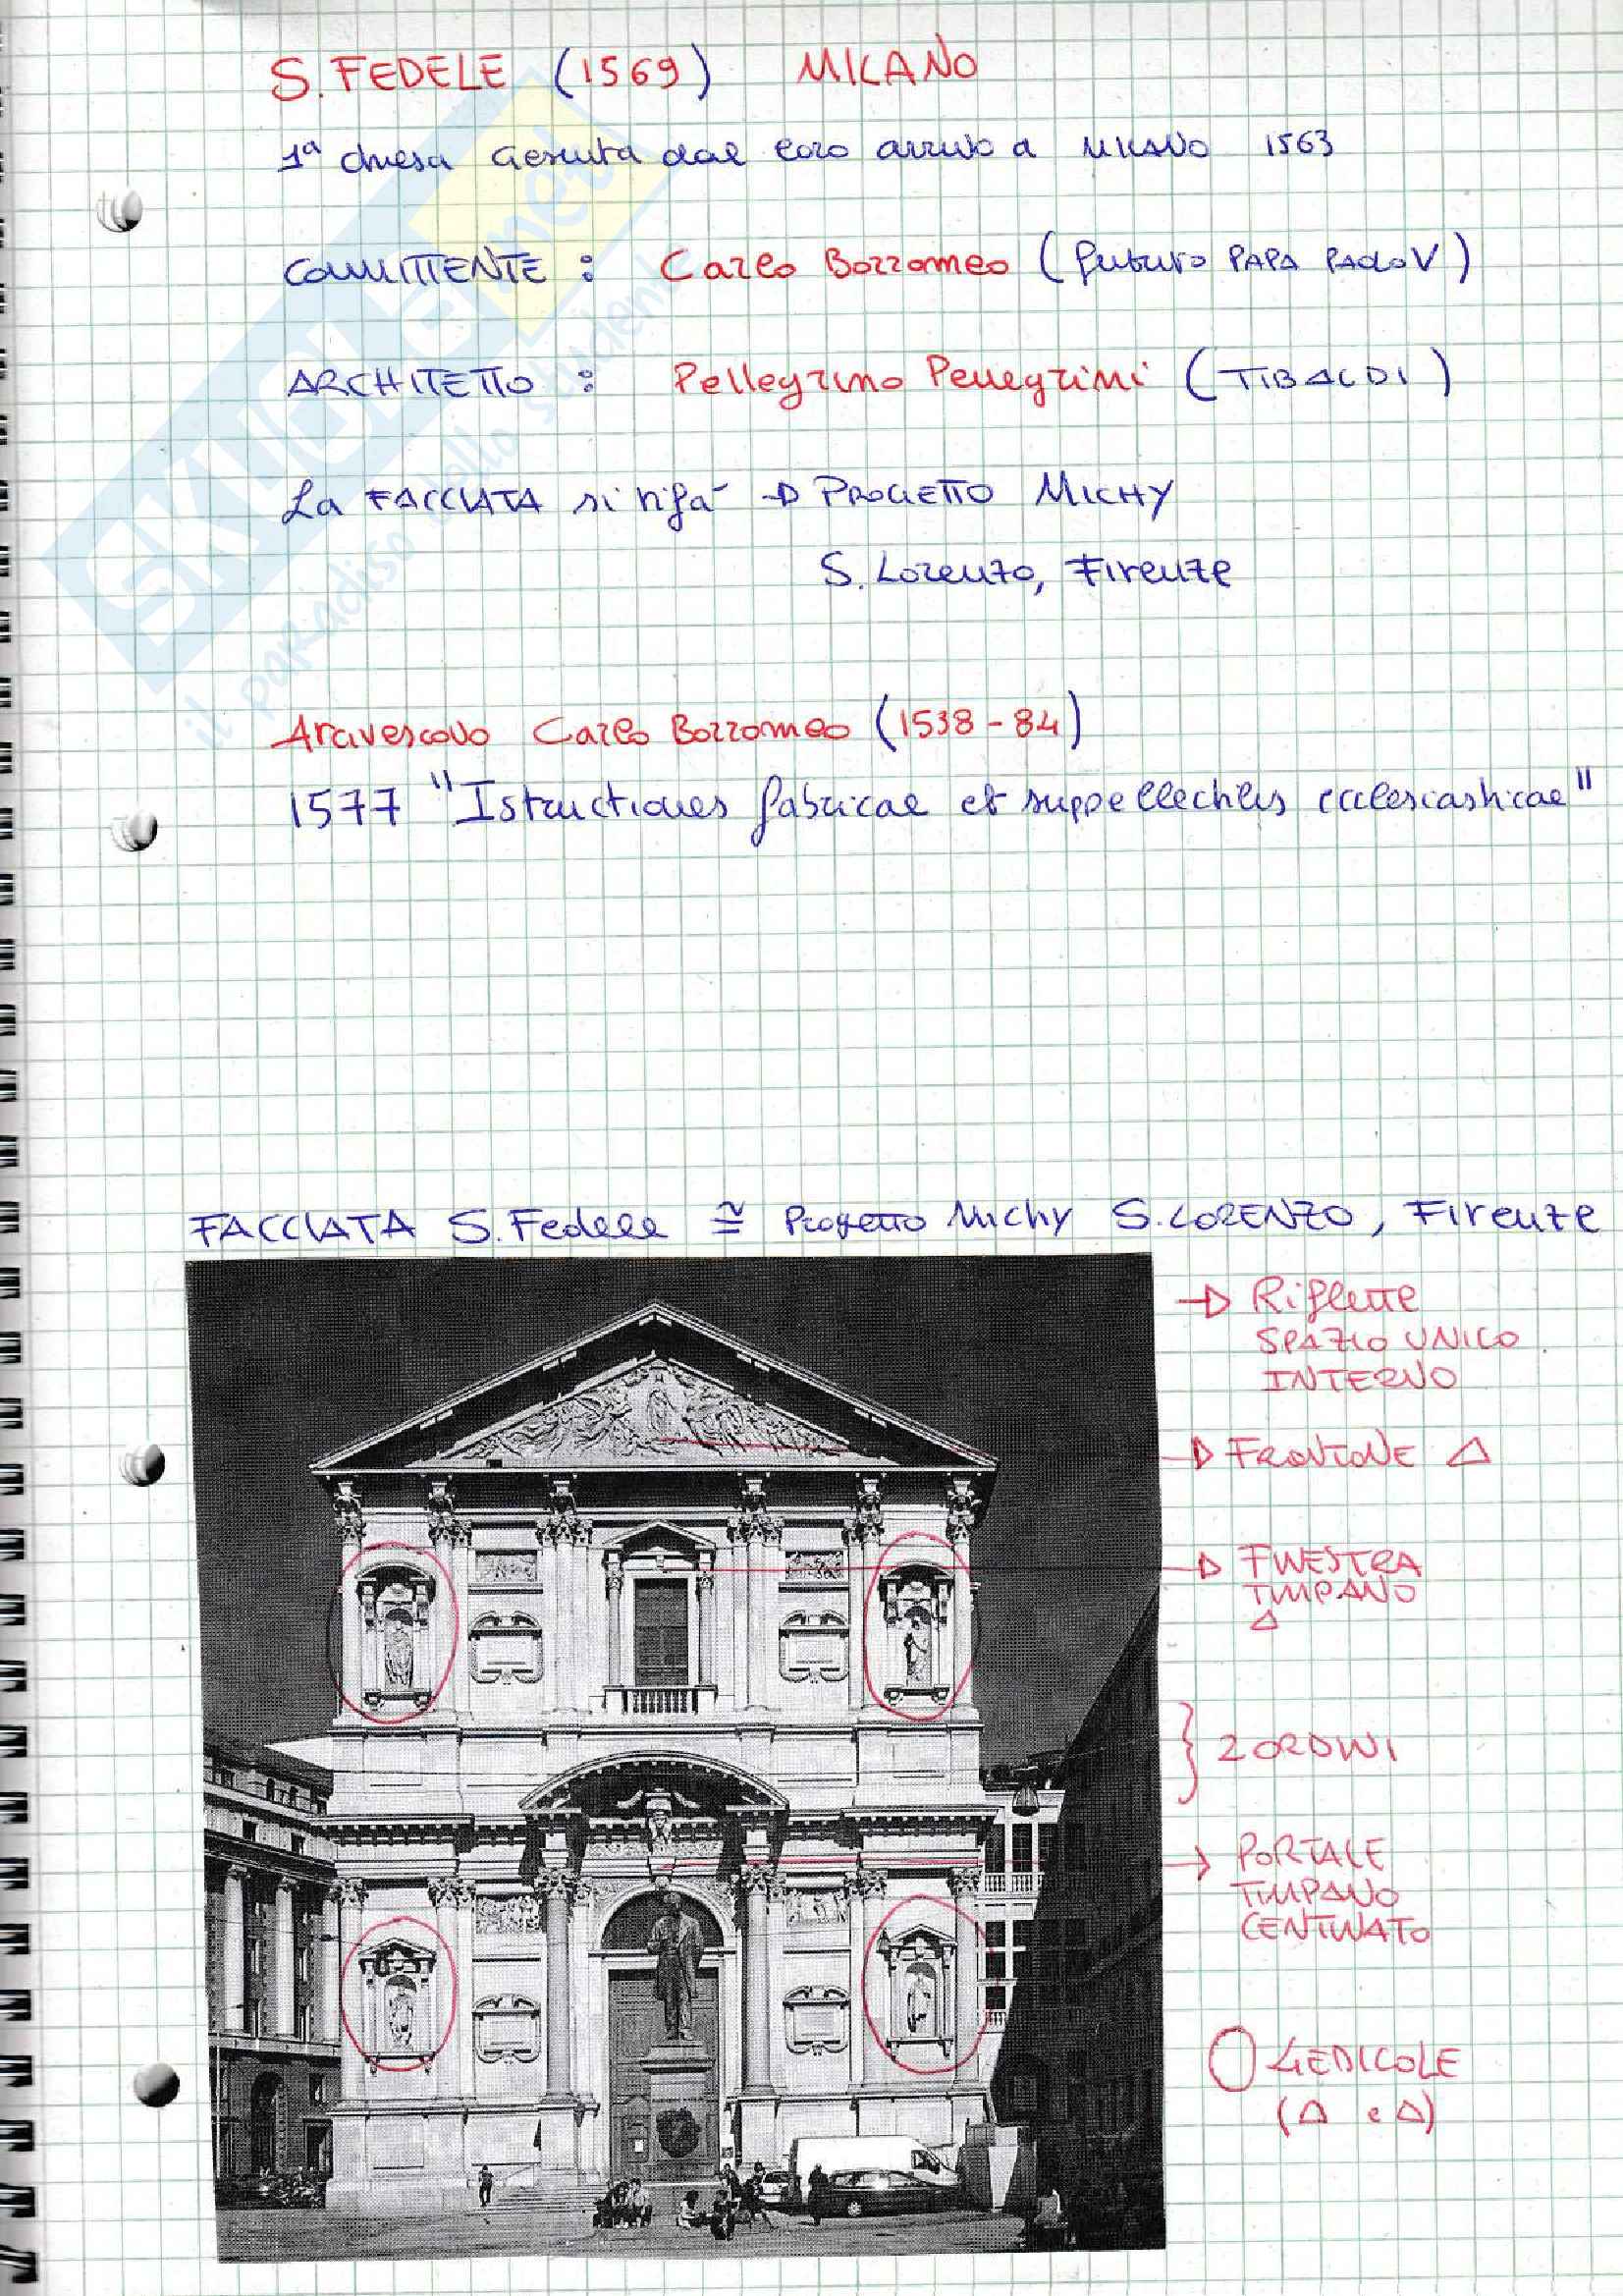 S. FEDELE (1569) MILANO
1ª chiesa Gesuita dal loro arrivo a MILANO 1563
COMMITTENTE : Carlo Borromeo (futuro PAPA PAOLO V)
ARCHITETTO : Pellegrino Pellegrini (TIBALDI)
La FACCIATA si rifà → PROGETTO MICHY
S. Lorenzo, Firenze
Arcivescovo Carlo Borromeo (1538-84)
1577 "Istructiones fabricae et suppellectilis ecclesiasticae"
FACCIATA S. Fedele ≅ Progetto Michy S. LORENZO, Firenze
→ Riflette
SPAZIO UNICO
INTERNO
→ FRONTONE △
→ FINESTRA
TIMPANO
△
} 2 ORDINI
→ PORTALE
TIMPANO
CENTINATO
O 4 EDICOLE
(△ e △)
SKUOLA.net
il paradiso dello studente